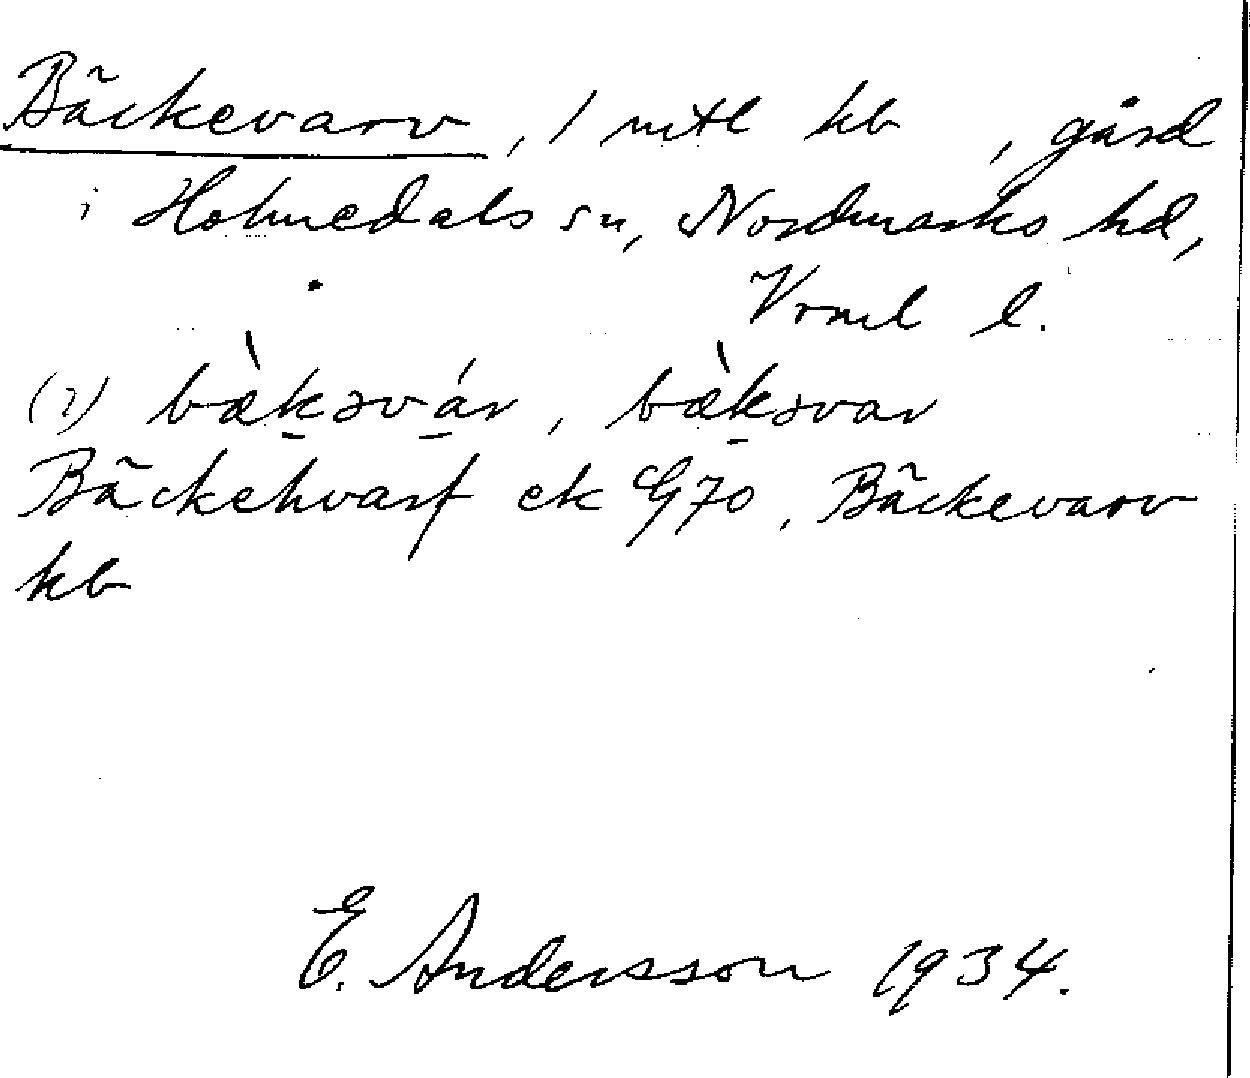 Bäckevarv, 1 mtl kb, gård
i Holmedals sn, Nordmarks hd,
Vrml l.
(i) bæ̀kəvár, bæ̀kəvar
Bäckehvarf ek G70, Bäckevarv
kb
E. Andersson 1934.